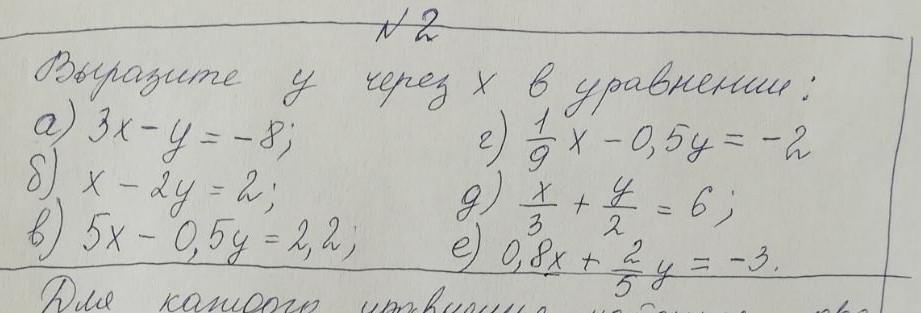 N 2
Выразите y через x в уравнении:
а) 3x - y = -8;
б) x - 2y = 2;
в) 5x - 0,5y = 2,2;
г) 1/9 x - 0,5y = -2
д) x/3 + y/2 = 6;
е) 0,8x + 2/5 y = -3.
Для каждого уравнения